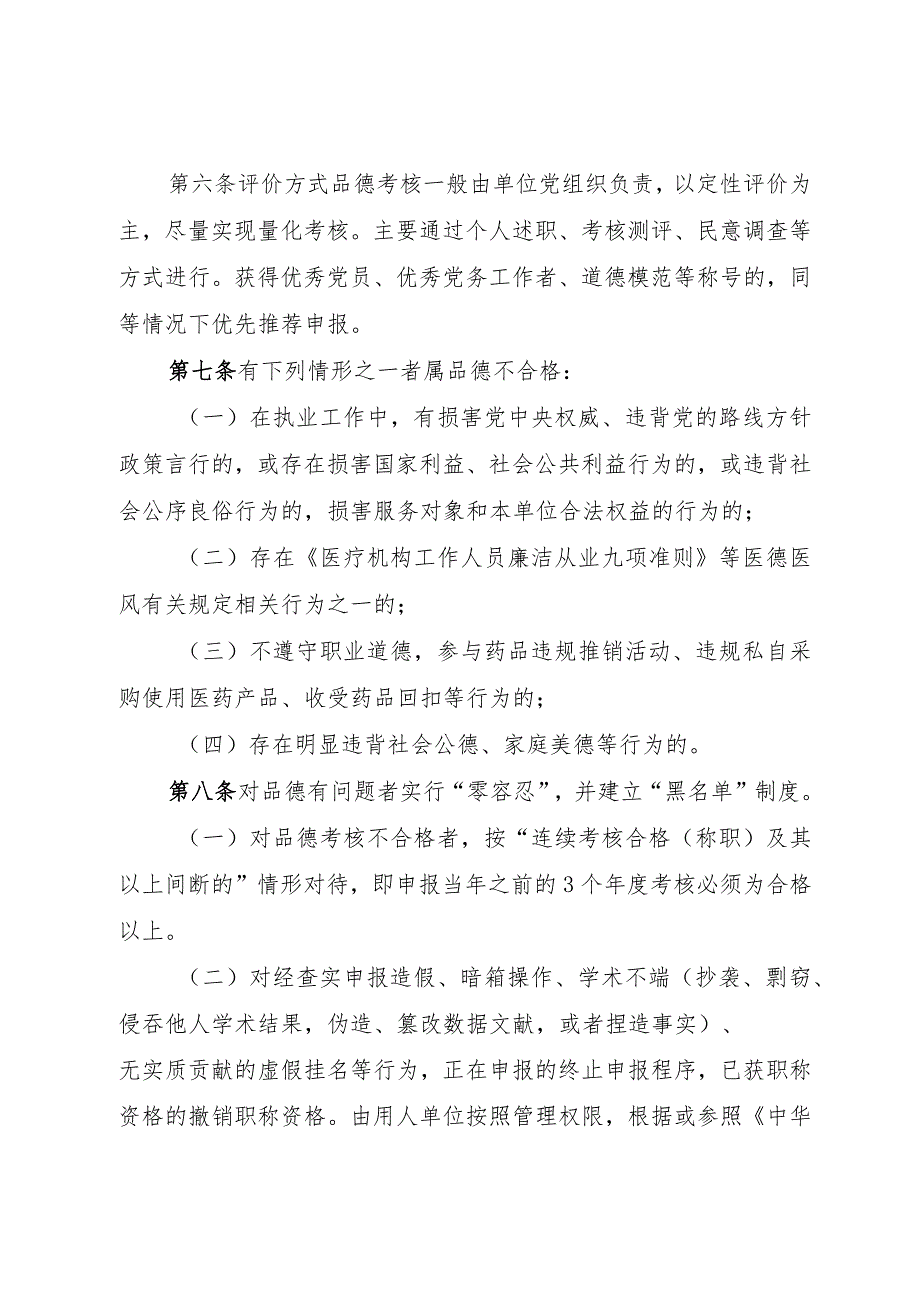 第六条评价方式品德考核一般由单位党组织负责，以定性评价为
主，尽量实现量化考核。主要通过个人述职、考核测评、民意调查等
方式进行。获得优秀党员、优秀党务工作者、道德模范等称号的，同
等情况下优先推荐申报。
第七条有下列情形之一者属品德不合格：
（一）在执业工作中，有损害党中央权威、违背党的路线方针
政策言行的，或存在损害国家利益、社会公共利益行为的，或违背社
会公序良俗行为的，损害服务对象和本单位合法权益的行为的；
（二）存在《医疗机构工作人员廉洁从业九项准则》等医德医
风有关规定相关行为之一的；
（三）不遵守职业道德，参与药品违规推销活动、违规私自采
购使用医药产品、收受药品回扣等行为的；
（四）存在明显违背社会公德、家庭美德等行为的。
第八条对品德有问题者实行“零容忍”，并建立“黑名单”制度。
（一）对品德考核不合格者，按“连续考核合格（称职）及其
以上间断的”情形对待，即申报当年之前的3个年度考核必须为合格
以上。
（二）对经查实申报造假、暗箱操作、学术不端（抄袭、剽窃、
侵吞他人学术结果，伪造、篡改数据文献，或者捏造事实）、
无实质贡献的虚假挂名等行为，正在申报的终止申报程序，已获职称
资格的撤销职称资格。由用人单位按照管理权限，根据或参照《中华